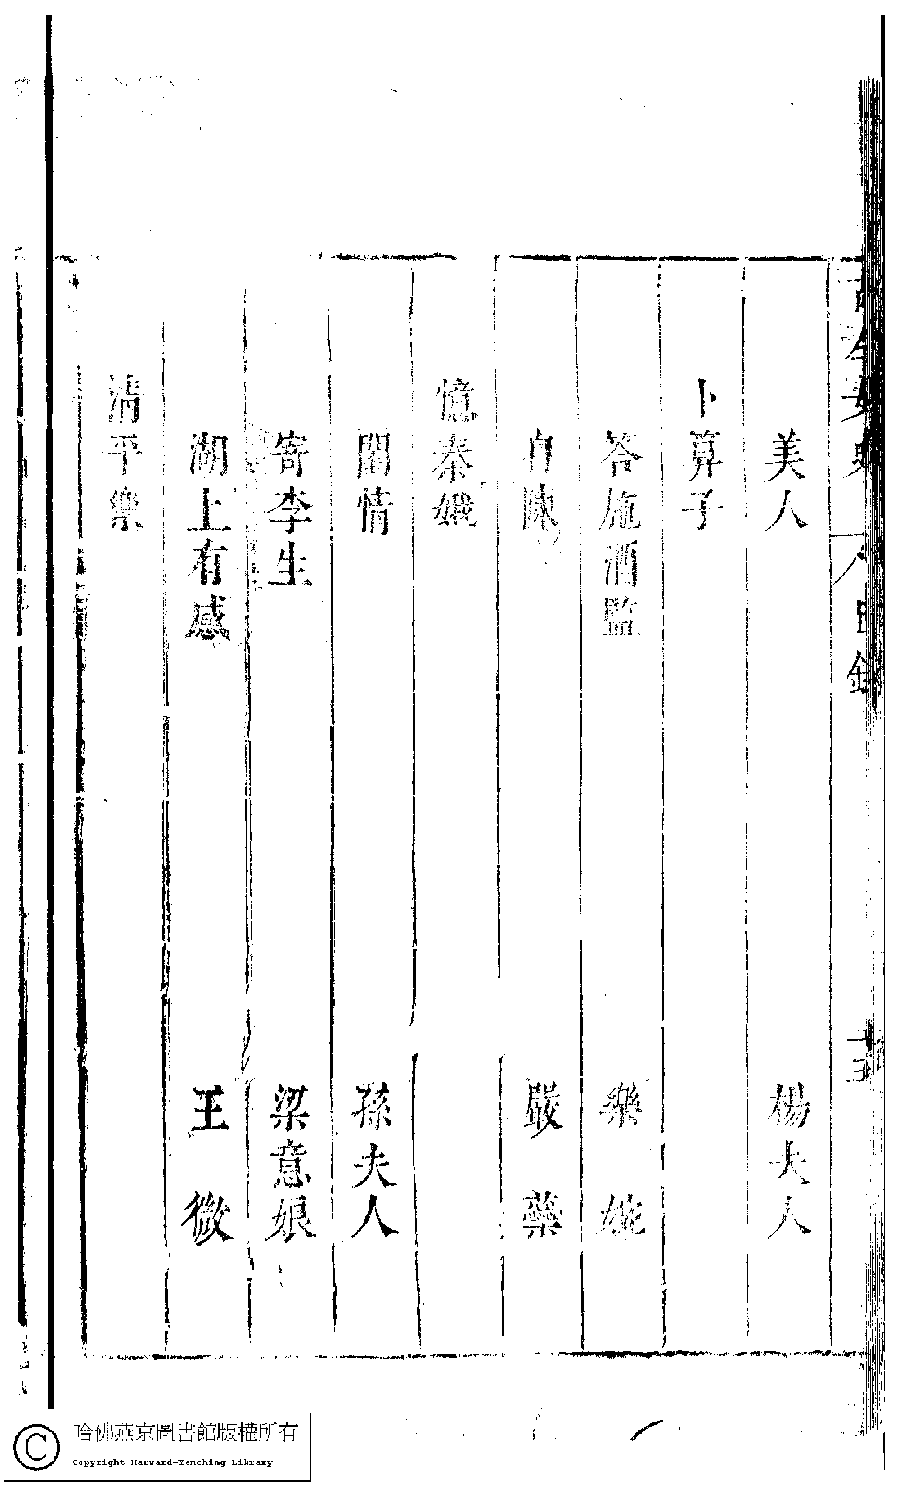 古今女史 目錄
美人 楊夫人
卜算子
答施酒監 樂婉
自陳 嚴蘂
憶秦娥
閨情 孫夫人
寄李生 梁意娘
湖上有感 王微
清平樂
哈佛燕京圖書館版權所有
Copyright Harvard-Yenching Library